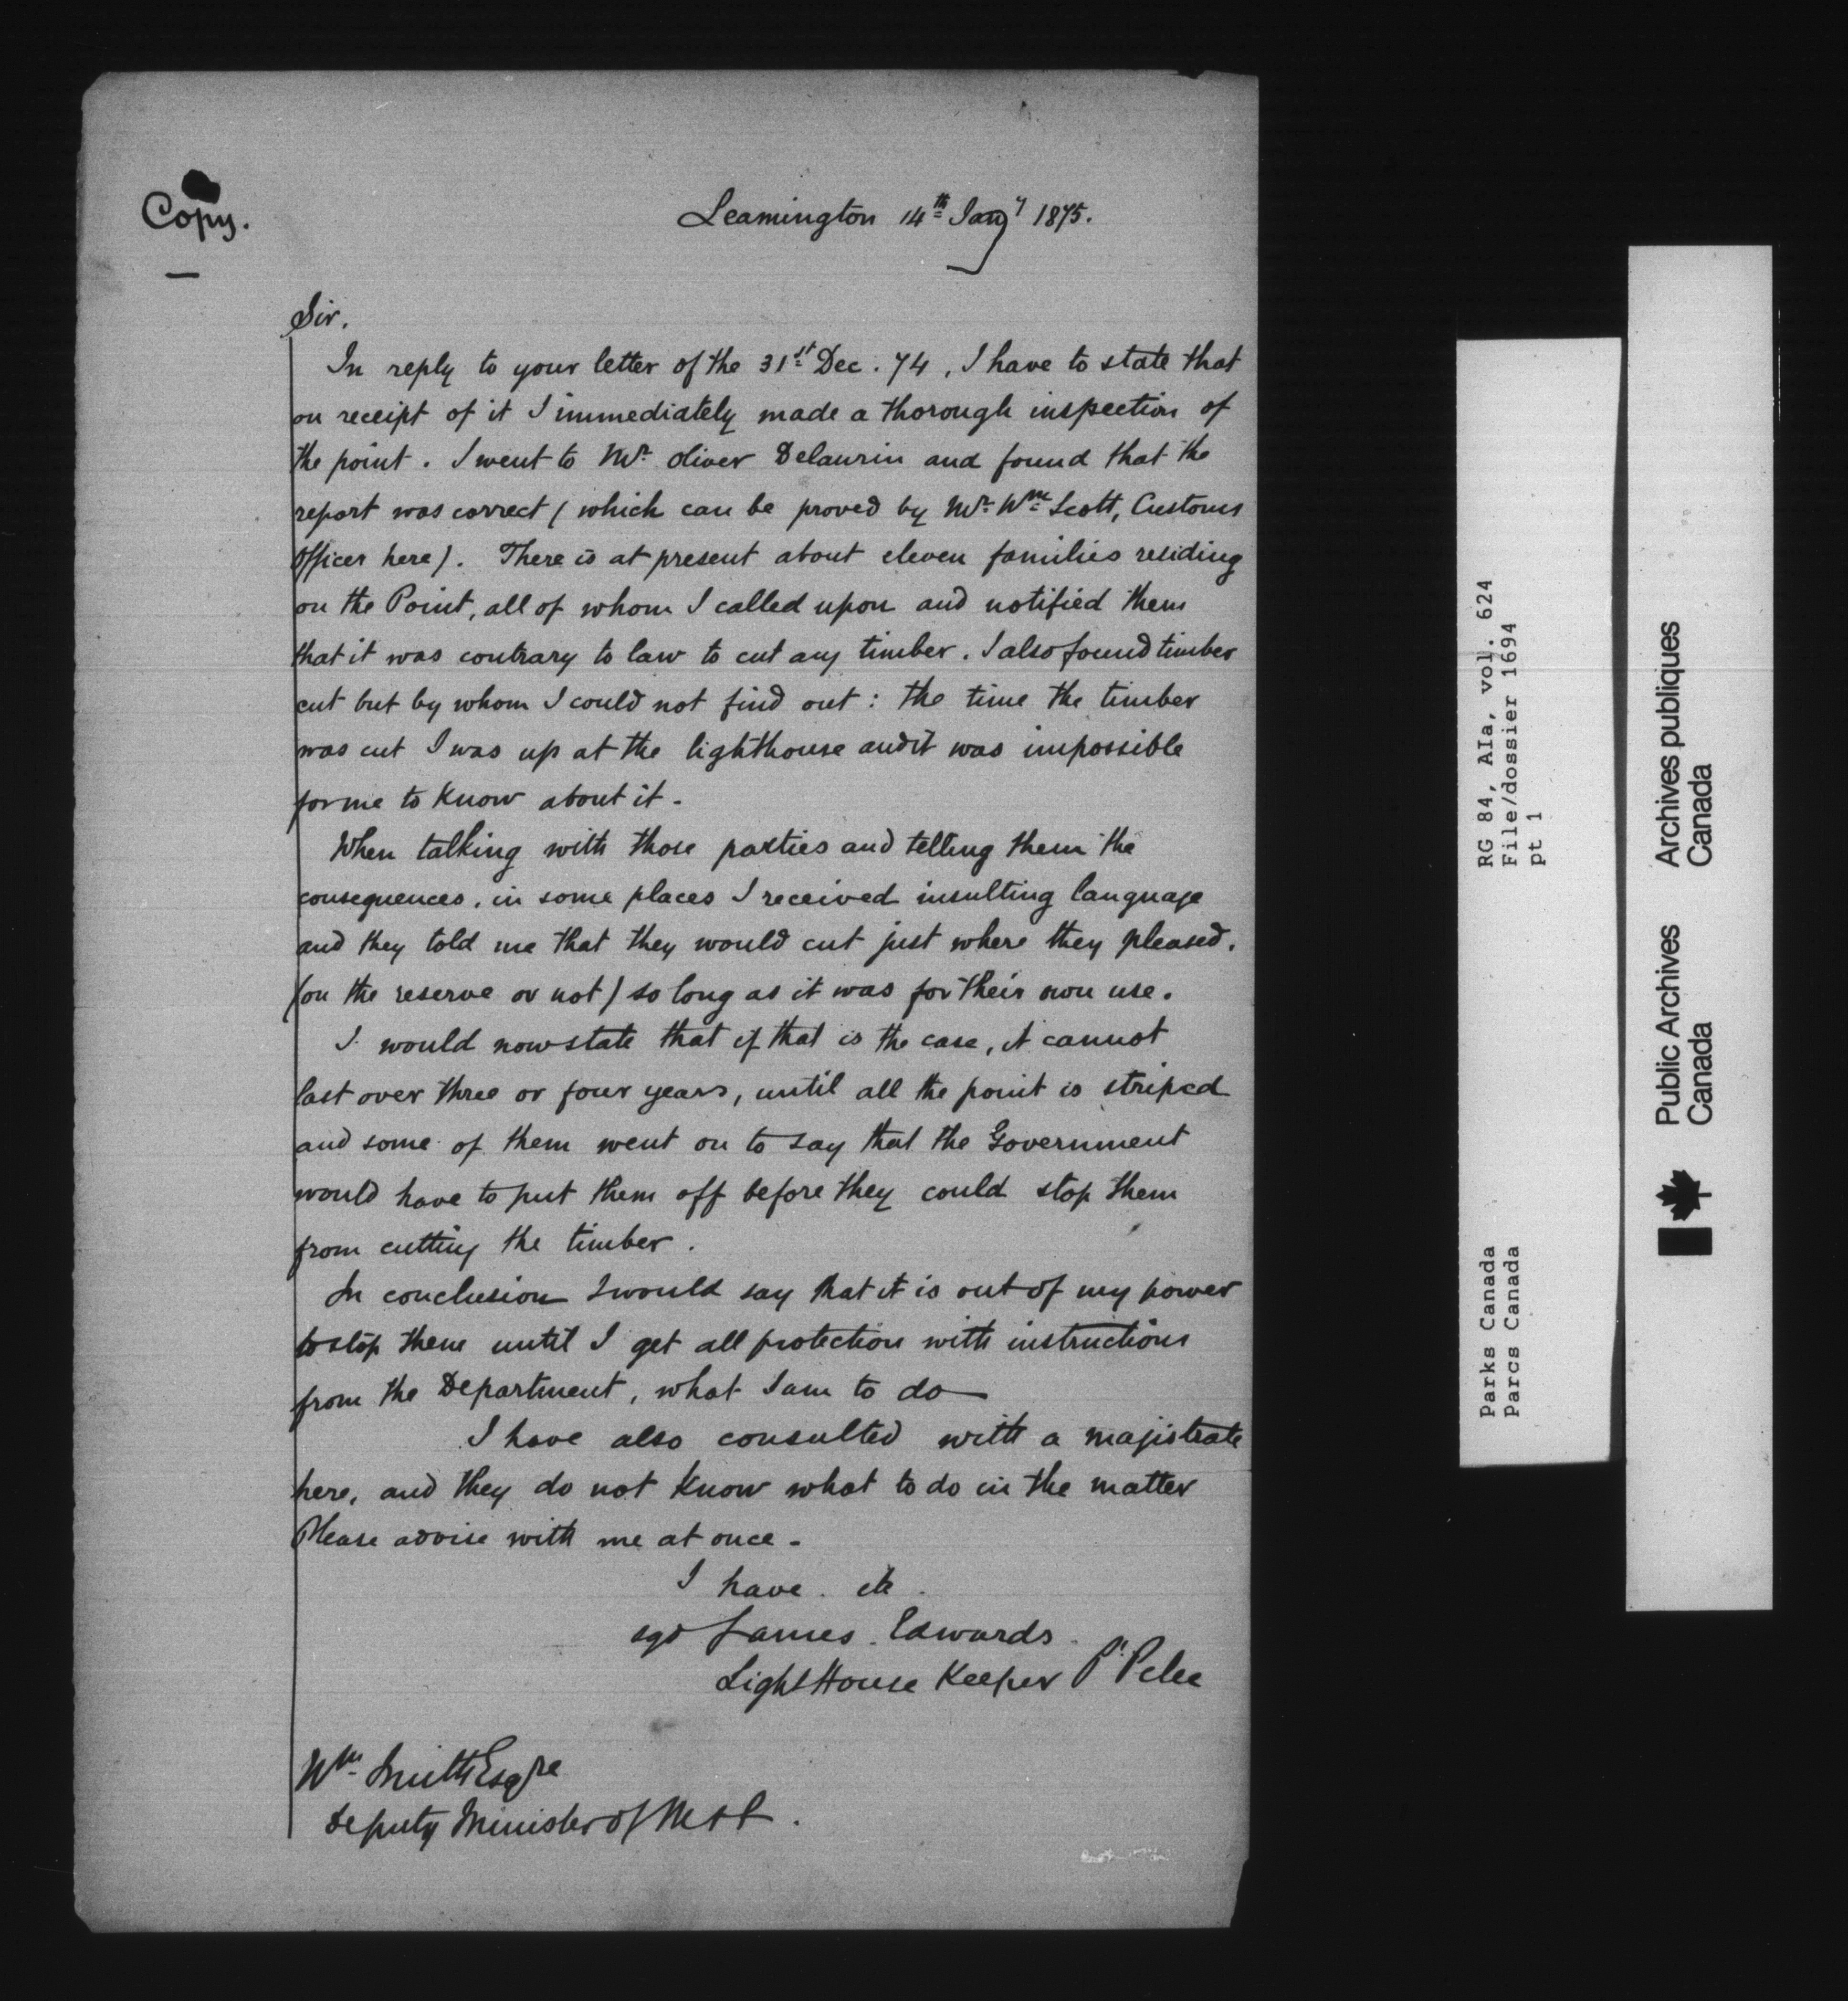 Copy.
Leamington 14th Jany 1875.
Sir.
In reply to your letter of the 31st Dec. 74, I have to state that
on receipt of it I immediately made a thorough inspection of
the point. I went to Mr. Oliver Delaurin and found that the
report was correct (which can be proved by Mr. Wm Scott, Customs
Officer here). There is at present about eleven families residing
on the Point, all of whom I called upon and notified them
that it was contrary to law to cut any timber. I also found timber
cut but by whom I could not find out: the time the timber
was cut I was up at the lighthouse and it was impossible
for me to know about it.
When talking with those parties and telling them the
consequences, in some places I received insulting language
and they told me that they would cut just where they pleased.
(on the reserve or not) so long as it was for their own use.
I would now state that if that is the case, it cannot
last over three or four years, until all the point is striped
and some of them went on to say that the Government
would have to put them off before they could stop them
from cutting the timber.
In conclusion I would say that it is out of my power
to stop them until I get all protection with instructions
from the Department, what I am to do
I have also consulted with a majistrate
here, and they do not know what to do in the matter
Please advise with me at once -
I have. etc.
sgd James. Edwards.
Light House Keeper Pt. Pelee
Wm. Smith Esqre
Deputy Minister of M & F.
RG 84, AIa, vol. 624
File/dossier 1694
pt 1
Parks Canada
Parcs Canada
Public Archives
Canada
Archives publiques
Canada